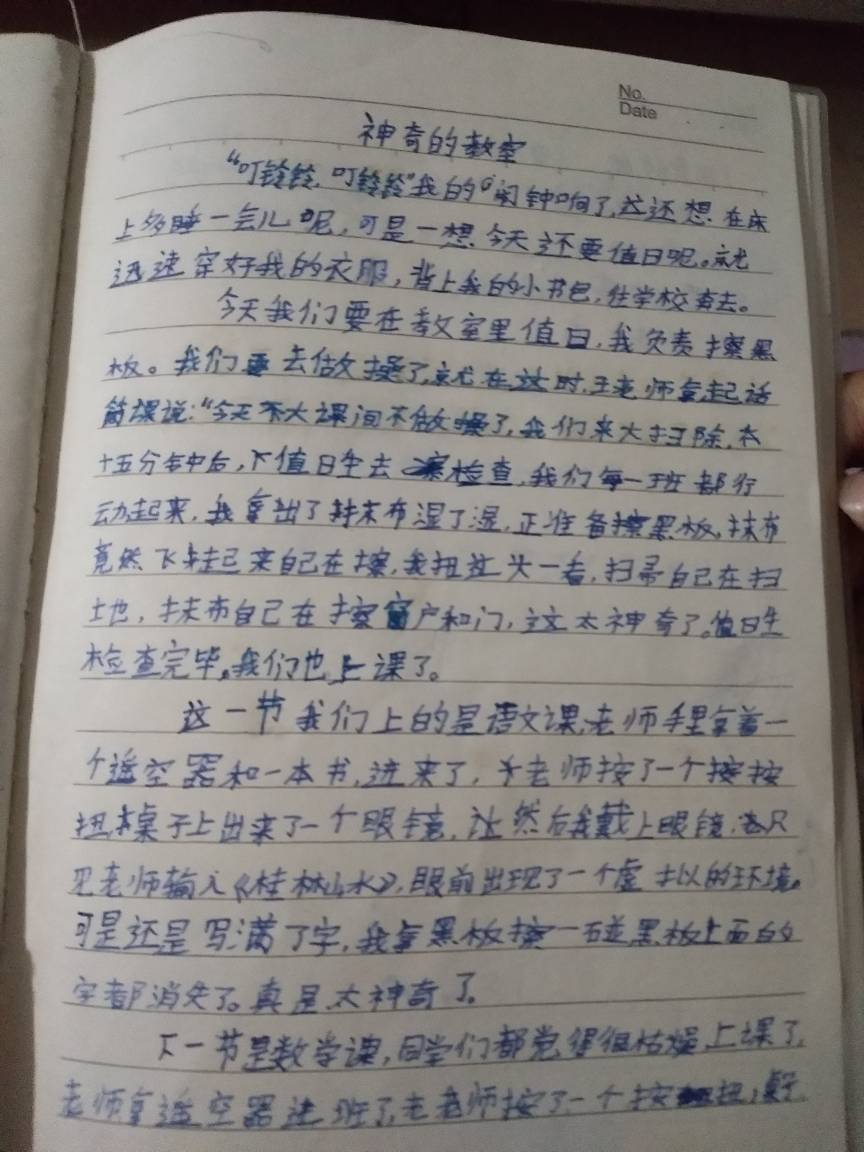 No.
Date
神奇的教室
“叮铃铃,叮铃铃”我的闹钟响了,还想在床
上多睡一会儿呢,可是一想今天还要值日呢。就
迅速穿好我的衣服,背上我的小书包,往学校奔去。
今天我们要在教室里值日,我负责擦黑
板。我们要去做操了,就在这时,王老师拿起话
筒说:“今天大课间不做操了,我们来大扫除,
十五分钟后,值日生去检查,我们每一班都行
动起来,我拿出了抹布湿了湿,正准备擦黑板,抹布
竟然飞起来自己在擦,我扭过头一看,扫帚自己在扫
地,抹布自己在擦窗户和门,这太神奇了。值日生
检查完毕,我们也上课了。
这一节我们上的是语文课,老师手里拿着一
个遥空器和一本书,进来了,老师按了一个按
扭,桌子上出来了一个眼镜,然后我戴上眼镜,只
见老师输入《桂林山水》,眼前出现了一个虚拟的环境。
可是还是写满了字,我拿黑板擦一碰,黑板上面的
字都消失了。真是太神奇了。
下一节是数学课,同学们都觉得很枯燥,上课了,
老师拿遥空器进班了,老师按了一个按扭,